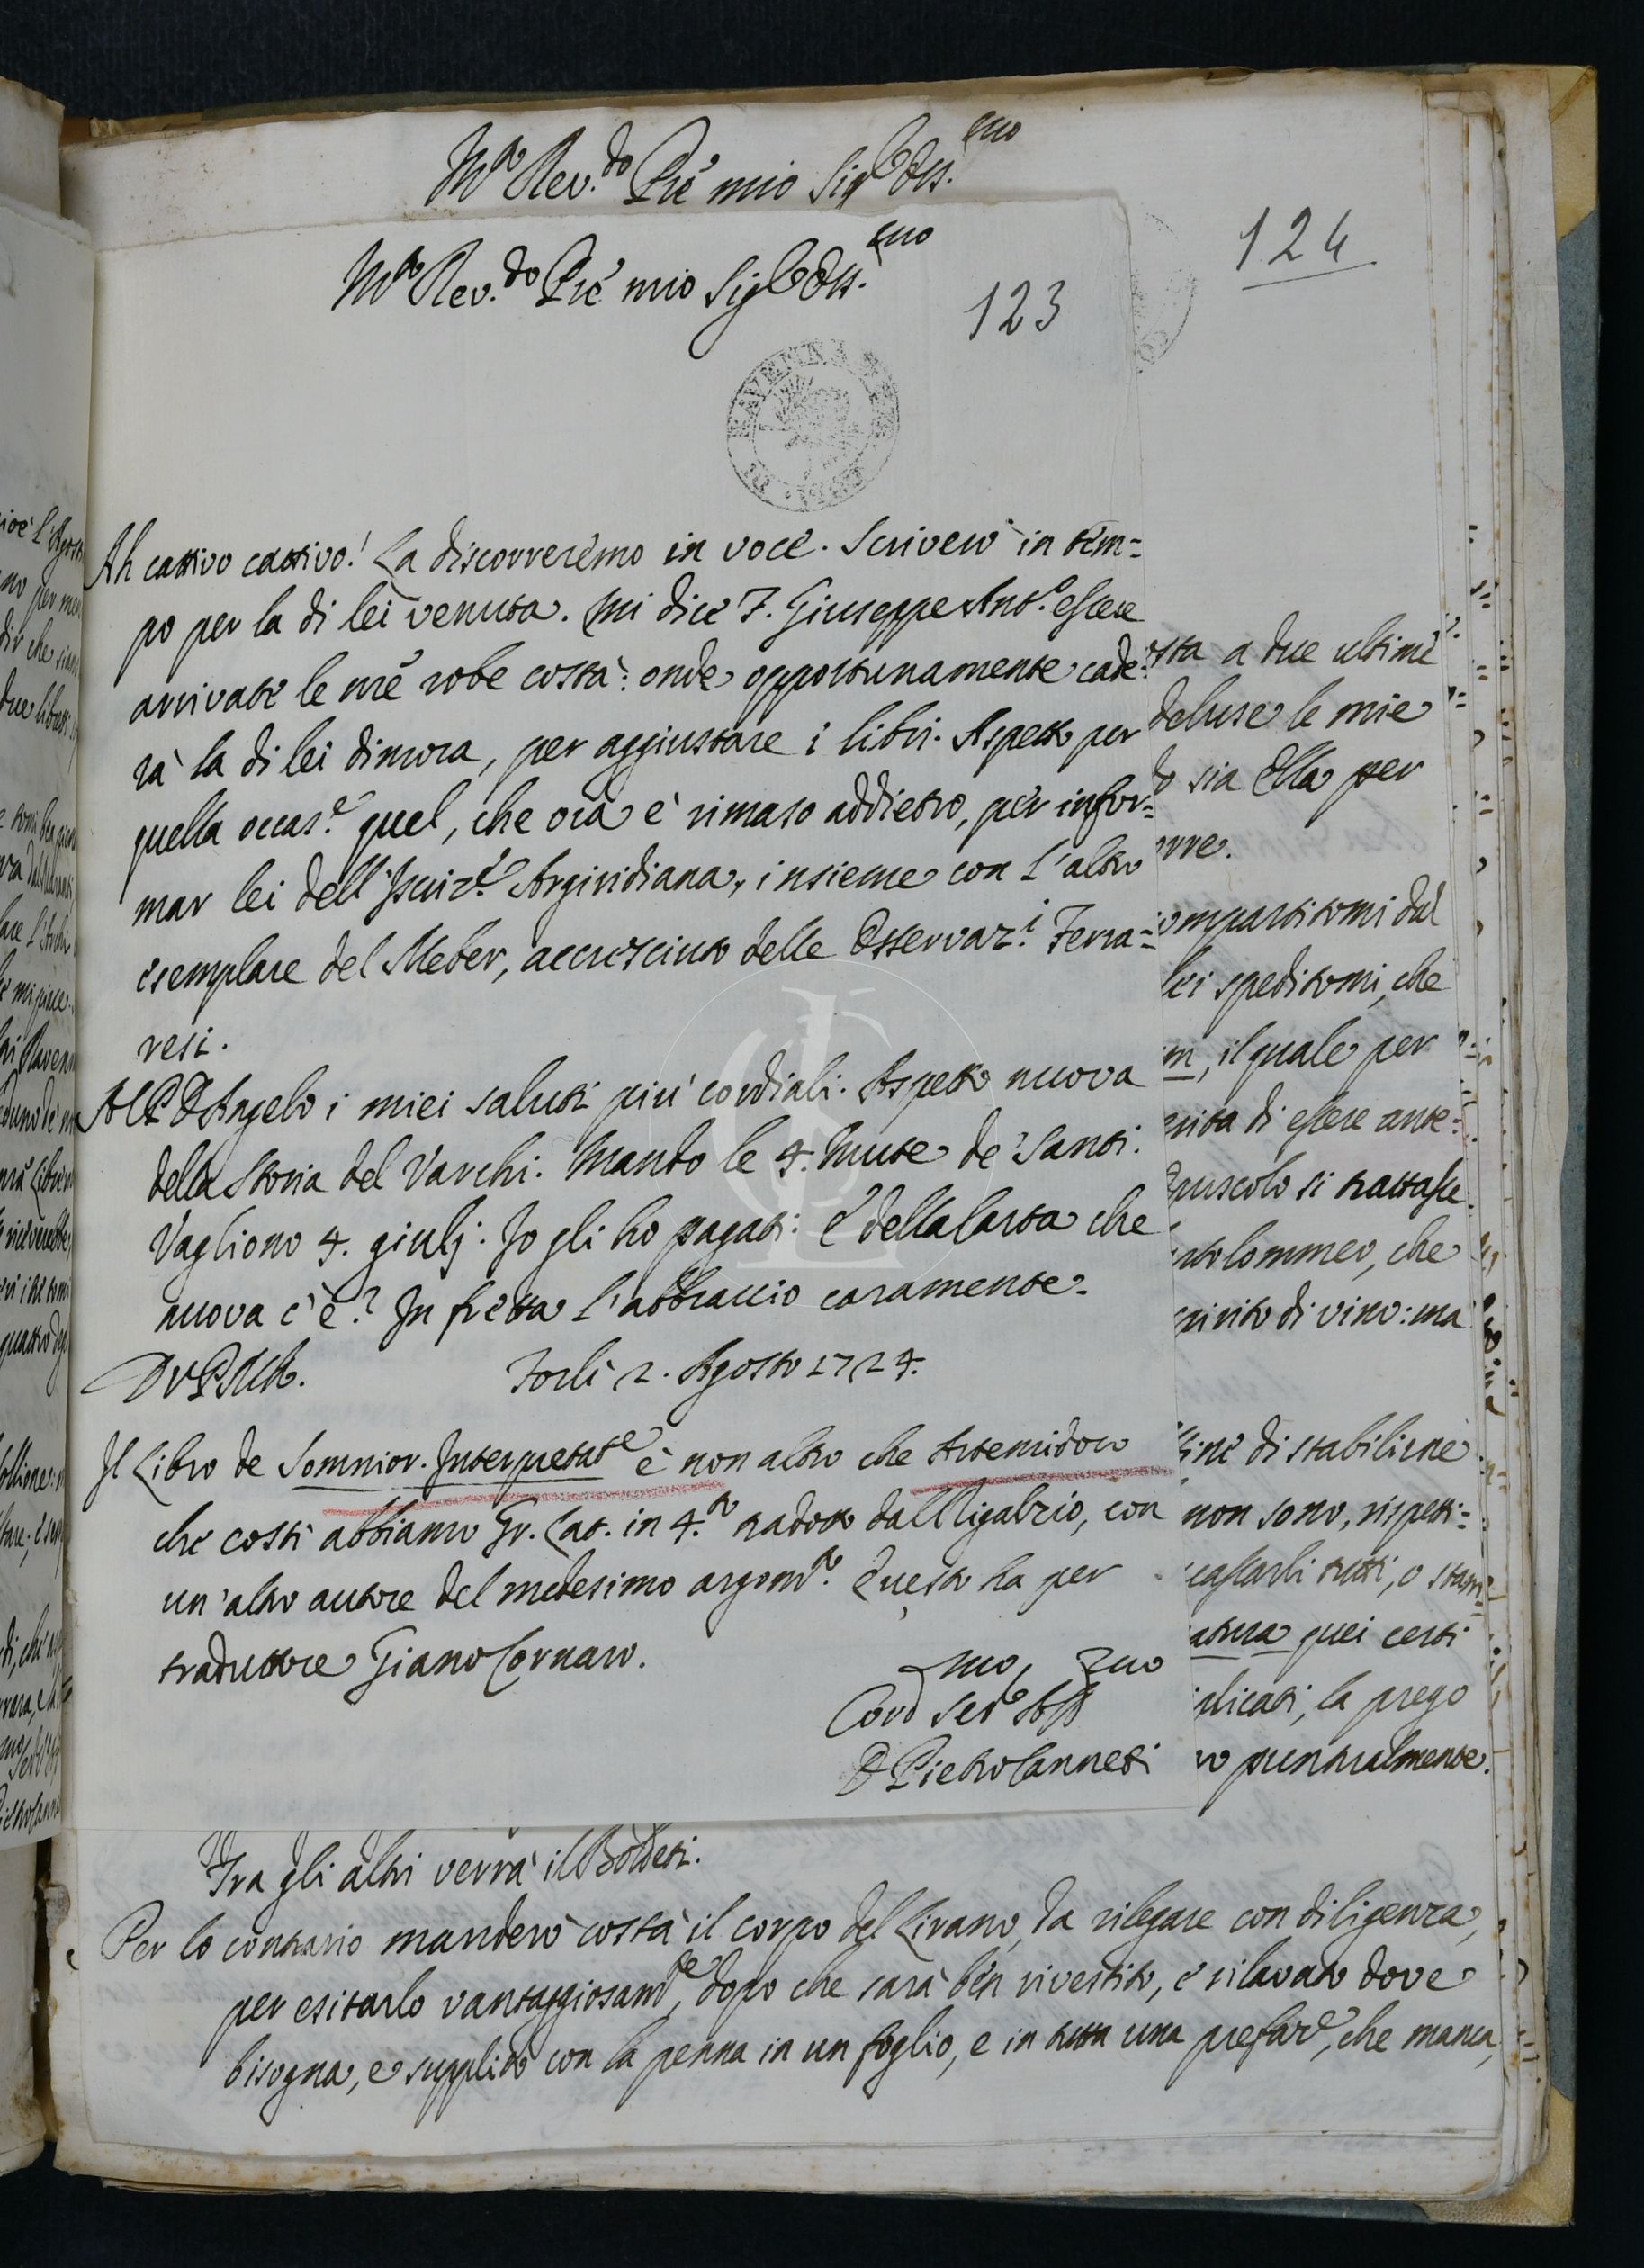 M.to Rev.do P.re mio Sig.
124
M.to Rev.do P.re mio Sig.
123
Ah cattivo cattivo! La discorreremo in voce. Scriverò in tem=
po per la di lei venuta. Mi dice F. Giuseppe Ant.o essere
arrivate le mie robe costà: onde opportunamente cade=
rà la di lei dimora, per aggiustare i libri. Aspetto per
quella occas.e quel, che ora è rimaso addietro, per infor=
mar lei dell'Iscriz.e Argiridiana, insieme con l'altro
esemplare del Meber, accresciuto delle Osservaz.i Ferra=
resi.
Al P. D. Angelo i miei saluti più cordiali. Aspetto nuova
della Storia del Varchi. Mando le 4. Mute de' Santi.
Vagliono 4. giulj. Io gli ho pagati: e della Carta che
nuova c'è? In fretta l'abbraccio caramente.
Forlì 2. Agosto 1724.
Il Libro de Somnior. Interpretat.e è non altro che Artemidoro
che costì abbiamo Gr. Lat. in 4.to tradotto dal Rigalzio, con
un'altro autore del medesimo argom.to. Questo ha per
traduttore Giano Cornaro.
D Pietro Canneti
sta a due ultime
deluse le mie
sia Ella per
rre.
ompartitomi dal
lei speditomi, che
m, il quale per
nita di essere ante=
puscolo si trattasse
rtolommeo, che
pirito di vino: ma
fine di stabilirne
non sono, rispetti=
cassarli tutti, o stam=
atura quei certi
plicati, la prego
o puntualmente.
Tra gli altri verrà il Boldeti.
Per lo contrario manderò costà il corpo del Lirano, da rilegare con diligenza,
per esitarlo vantaggiosam.te, dopo che sarà ben rivestito, e rilavato dove
bisogna, e supplito con la penna in un foglio, e in tutta una prefaz.e, che manca,